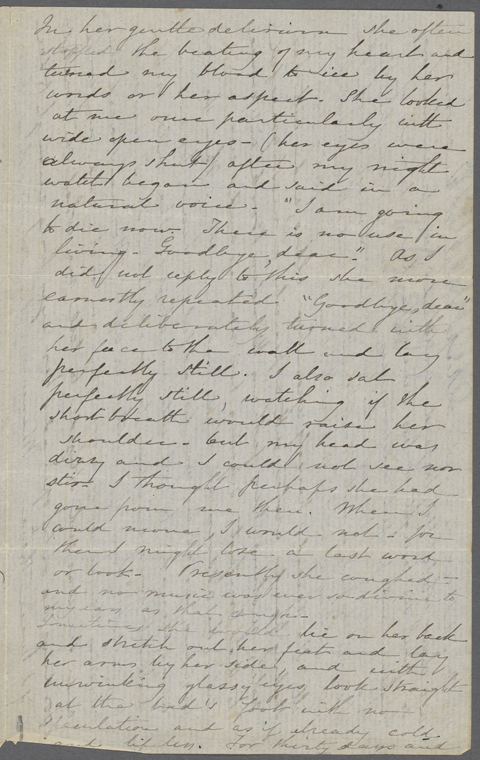 In her gentle delirium she often
stopped the beating of my heart and
turned my blood to ice by her
words or her aspect. She looked
at me once particularly with
wide open eyes - (her eyes were
always shut) after my night
watch began and said in a
natural voice - "I am going
to die now. There is no use in
living - Goodbye, dear." As I
did not reply to this she more
earnestly repeated "Goodbye, dear"
and deliberately turned with
her face to the wall and lay
perfectly still. I also sat
perfectly still, watching if the
short breath would raise her
shoulder - but my head was
dizzy and I could not see nor
stir - I thought perhaps she had
gone from me then. When I
could move, I would not - for
then I might lose a last word
or look - Presently she coughed -
and no music was ever so divine to
my ears as that cough -
Sometimes she would lie on her back
and stretch out her feet and lay
her arms by her side, and with
unwinking glassy eyes, look straight
at the bed's foot with no
speculation and as if already cold
and lifeless. For thirty days and